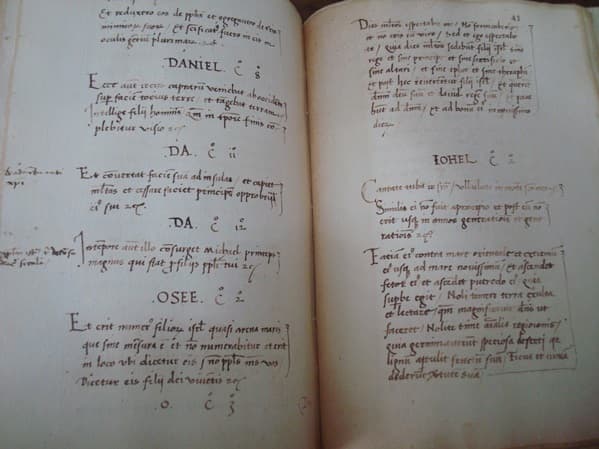 Et reducero eos de pplis et congregavero de
oculis gentiu plurimaru
DANIEL. c 8
Ecce aut caprarum veniebat ab occidente
sup faciem totius terre, et no tagebat terram
Intellige filij hominis qm in tpore finis com
plebitur visio
DA c 11
Et convertat faciem sua ad insulas, et capiet
multas et cessare faciet principem opprobrij
sui
DA. c 12
In tempore aut illo consurget Michael princeps
magnus qui stat p filijs ppli tui
OSEE. c 2
Et erit numer filior isrl quasi arena maris
que sine mesura e et no numerabitur et erit
in loco ubi dicetur eis no ppls ms vos
Dicetur eis filij dei viventis
O. c 3
41
Dies multos expectabis me, No fornicaberis
et no eris cu viro, Sed et ego expectabo
te, Quia dies multos sedebut filij isrl sine
rege et sine principe et sine sacrificio et
sine altari, et sine ephot et sine theraphi
et post hec revertentur filij isrl, et querent
dnm deu suu et david rege suu, et pave
but ad dnm, et ad bonu ei in novissimo
dieru
IOHEL c 2
Cantate tuba in syon, ululate in monte sancto meo
Similis ei no fuit a principio et post eu no
erit usq in annos generationis et gene
rationis
Facia contra mare orientale et extremu
ei usq ad mare novissimu, et ascendet
fetor ei et ascedet putredo ei quia
supbe egit, Noli timere terra exulta
et letare, qm magnificavit dns ut
faceret, Nolite timere aialia regionis,
quia germinaverut speciosa deserti qz
lignu attulit fructu suu, Ficus et vinea
dederut virtute sua